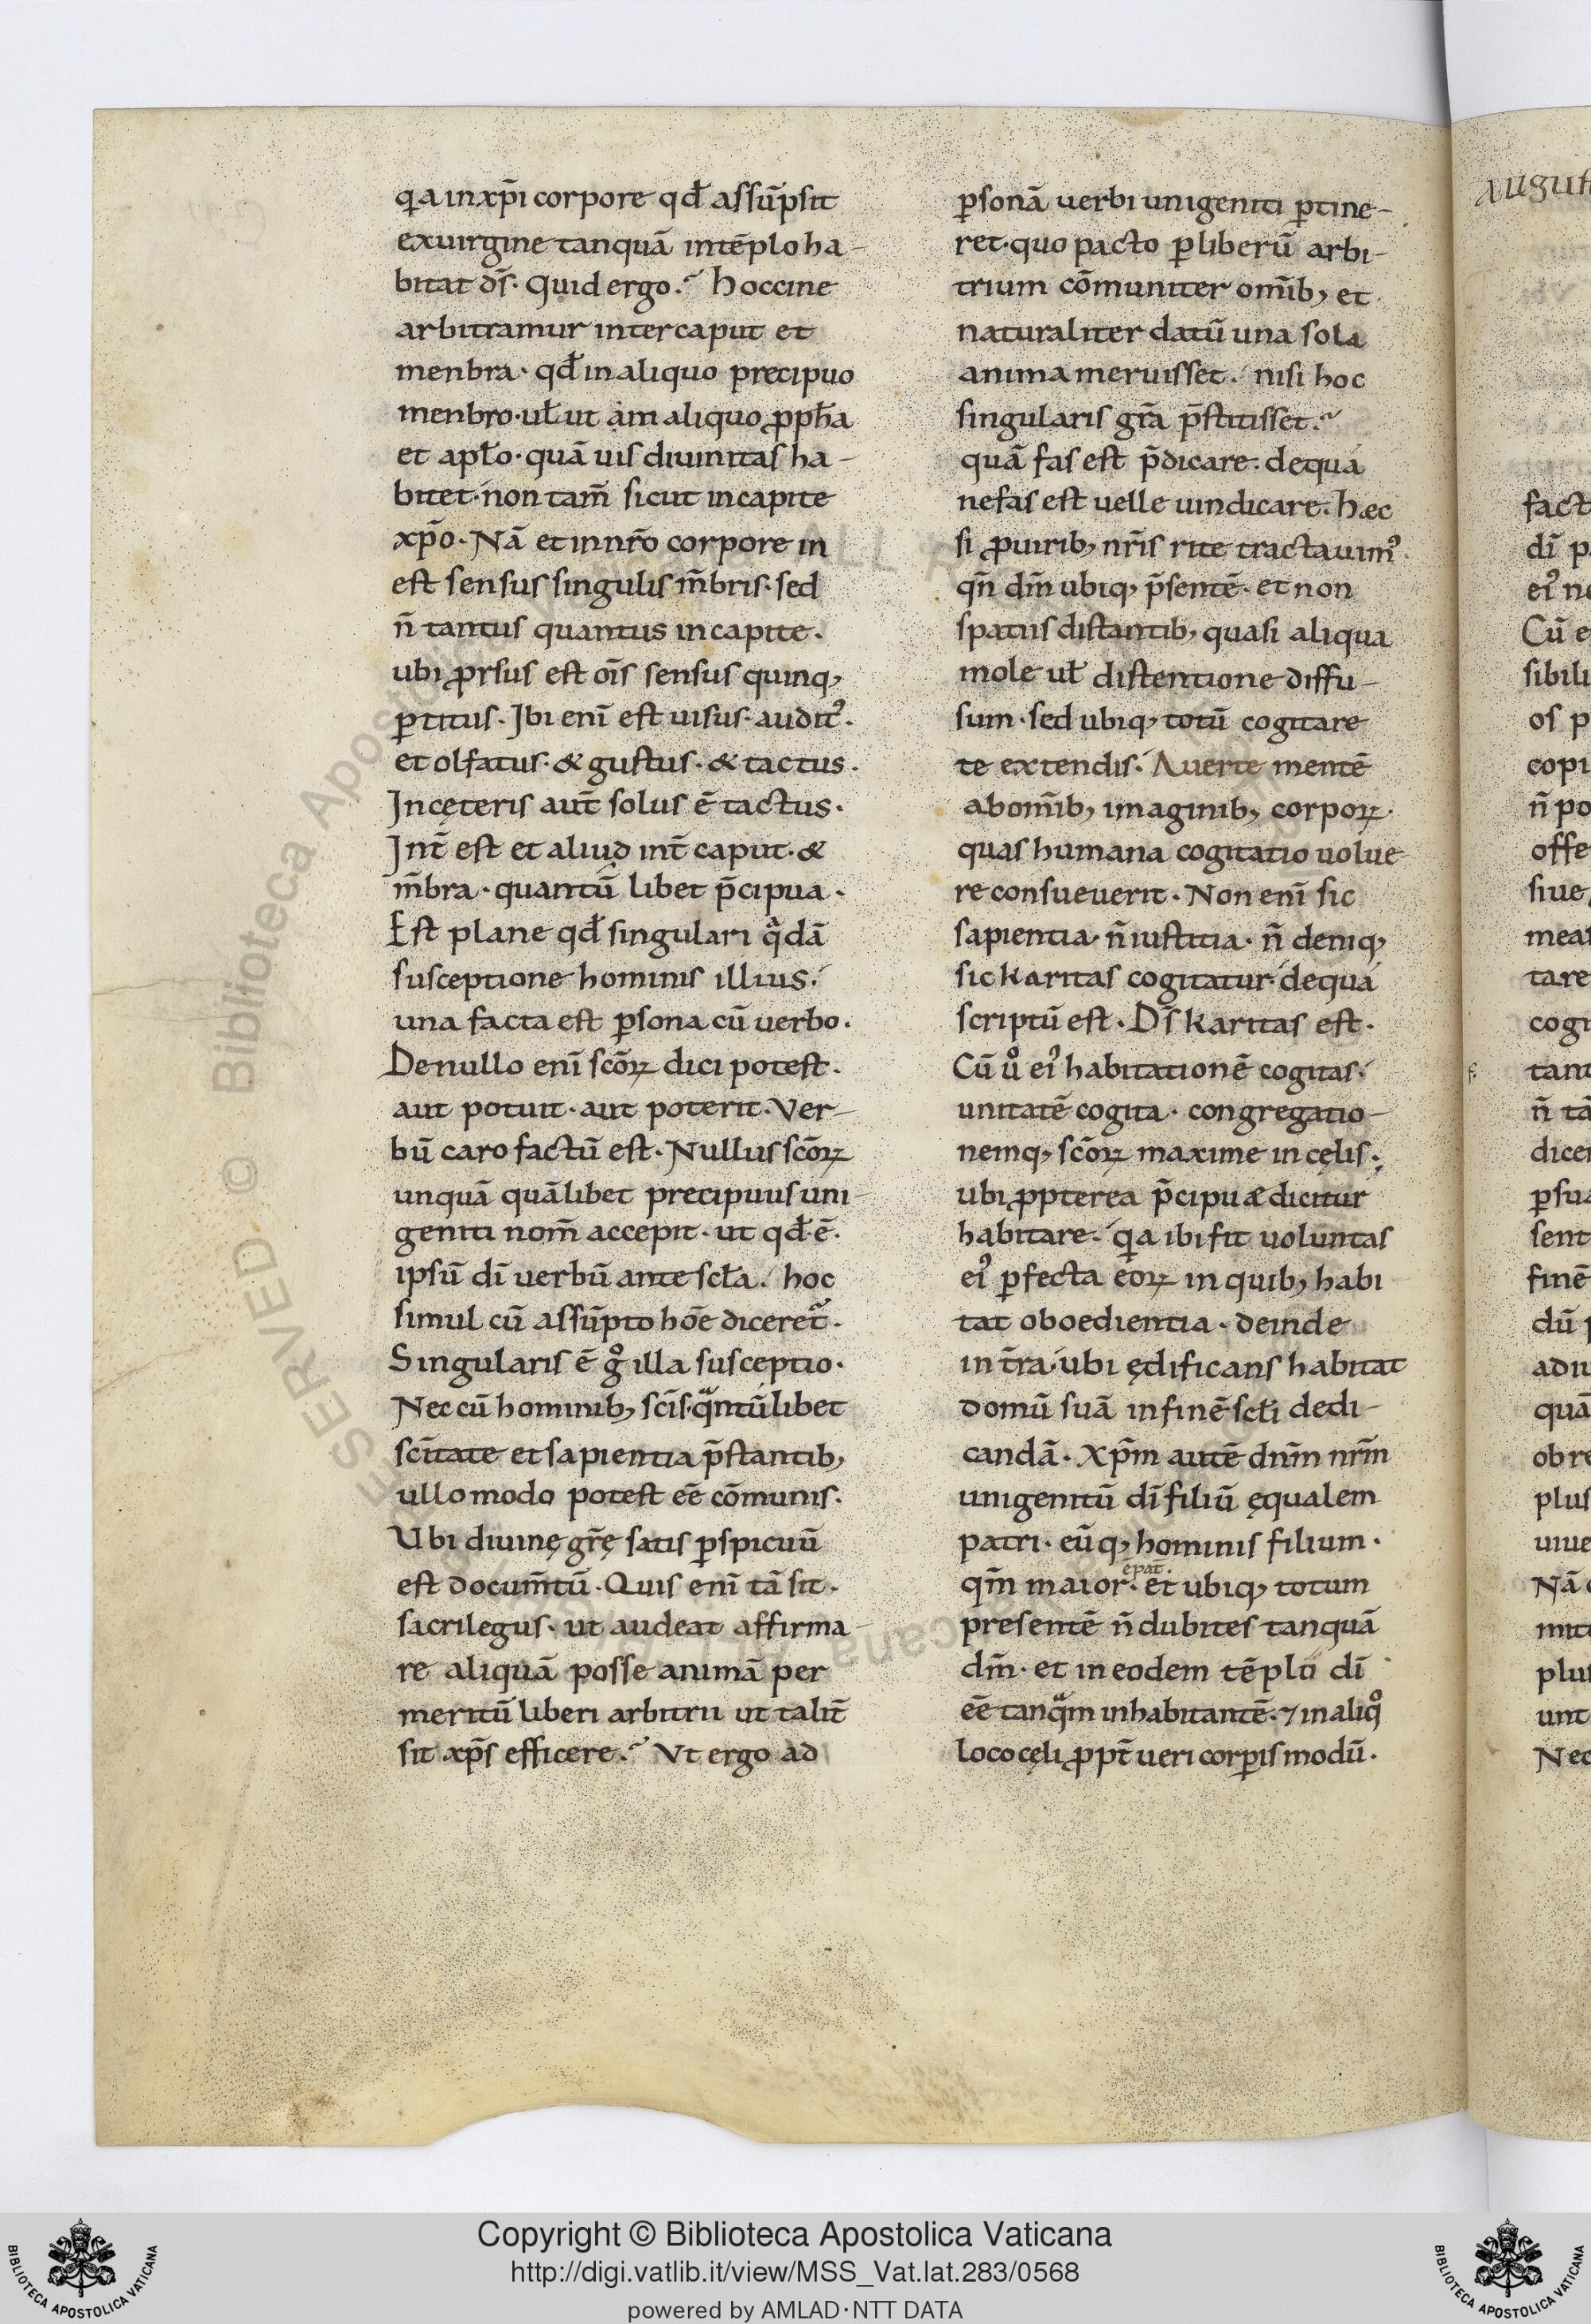 qa in xp̄i corpore qđ assū̄psit
ex uirgine tanquā in tēplo ha-
bitat ds̄. Quid ergo? hoccine
arbitramur inter caput et
menbra. qđ in aliquo precipuo
menbro. uł ut ām aliquo ꝓpħa
et apło. quā uis diuinitas ha-
bitet. non tam̄ sicut in capite
xp̄o. Nā et in nr̄o corpore in
est sensus singulis m̄bris. sed
n̄ tantus quantus in capite.
ubi ꝓrsus est ois̄ sensus quinq;
ꝑtitus. Ibi eni̅ est uisus. audit᷒.
et olfatus. & gustus. & tactus.
In cęteris aut̄ solus ē tactus.
Int̄ est et aliud int̄ caput. &
m̄bra. quantū libet p̄cipua.
Est plane qđ singulari qͣdā
susceptione hominis illius.
una facta est ꝑsona cū uerbo.
De nullo eni̅ scōꝝ dici potest.
aut potuit. aut poterit. Ver-
bū caro factū est. Nullus scōꝝ
unquā quālibet precipuus uni-
geniti nom̄ accepit. ut qđ. ē.
ipsū di̅ uerbū ante scła. hoc
simul cū assūpto hōe diceret᷑.
Singularis ē gͦ illa susceptio.
Nec cū hominib; scīs. qͣntūlibet
scītate et sapientia p̄stantib;
ullo modo potest eē cōmunis.
Ubi diuinę gr̄ę satis ꝑspicuū
est docum̄tū. Quis eni̅ tā sit.
sacrilegus. ut audeat affirma-
re aliquā posse animā per
meritū liberi arbitrii ut talit̄
sit xp̄s efficere? Vt ergo ad
ꝑsonā uerbi unigeniti ꝑtine-
ret. quo pacto ꝑ liberū arbi-
trium cōmuniter omīb; et
naturaliter datū una sola
anima meruisset. nisi hoc
singularis gr̄a p̄stitisset?
quā fas est p̄dicare. de qua
nefas est uelle uindicare. hæc
si ꝓ uirib; nr̄is rite tractauim᷒.
qn̄ dm̄ ubiq; p̄sentē. et non
spatiis distantib; quasi aliqua
mole uł distentione diffu-
sum. sed ubiq; totū cogitare
te extendis. Auerte mentē
ab omīb; imaginib; corporꝝ.
quas humana cogitatio uolue
re consueuerit. Non eni̅ sic
sapientia. n̄ iustitia. n̄ deniq;
sic karitas cogitatur. de qua
scriptū est. Ds̄ karitas est.
Cū uͦ ei᷒ habitationē cogitas.
unitatē cogita. congregatio-
nemq; scōꝝ maxime in cęlis.
ubi ꝓpterea p̄cipuæ dicitur
habitare. qa ibi fit uoluntas
ei᷒ ꝑfecta eoꝝ in quib; habi
tat oboedientia. deinde
in tr̄a. ubi ędificans habitat
domū suā in finē scłi dedi-
candā. Xp̄m autē dnm̄ nr̄m
unigenitū di̅ filiū ęqualem
patri. eūq; hominis filium.
epat̄.
qm̄ maior. et ubiq; totum
presentē n̄ dubites tanquā
dm̄. et in eodem tēplo di̅
eē tanqͣm inhabitantē. ⁊ in aliqͦ
loco cęli ꝓpt̄ ueri corꝑis modū.
fact
di̅ p
ei᷒ n
Cū e
sibili
os p
copi
n̄ po
offe
siue
mea
tare
cogi
tan
n̄ tā
dice
ꝑsua
sent
finē
dū
adiu
quā
ob re
plus
uiue
Nā
plus
unt
Nec
Copyright © Biblioteca Apostolica Vaticana
http://digi.vatlib.it/view/MSS_Vat.lat.283/0568
powered by AMLAD·NTT DATA
BIBLIOTECA APOSTOLICA VATICANA
BIBLIOTECA APOSTOLICA VATICANA